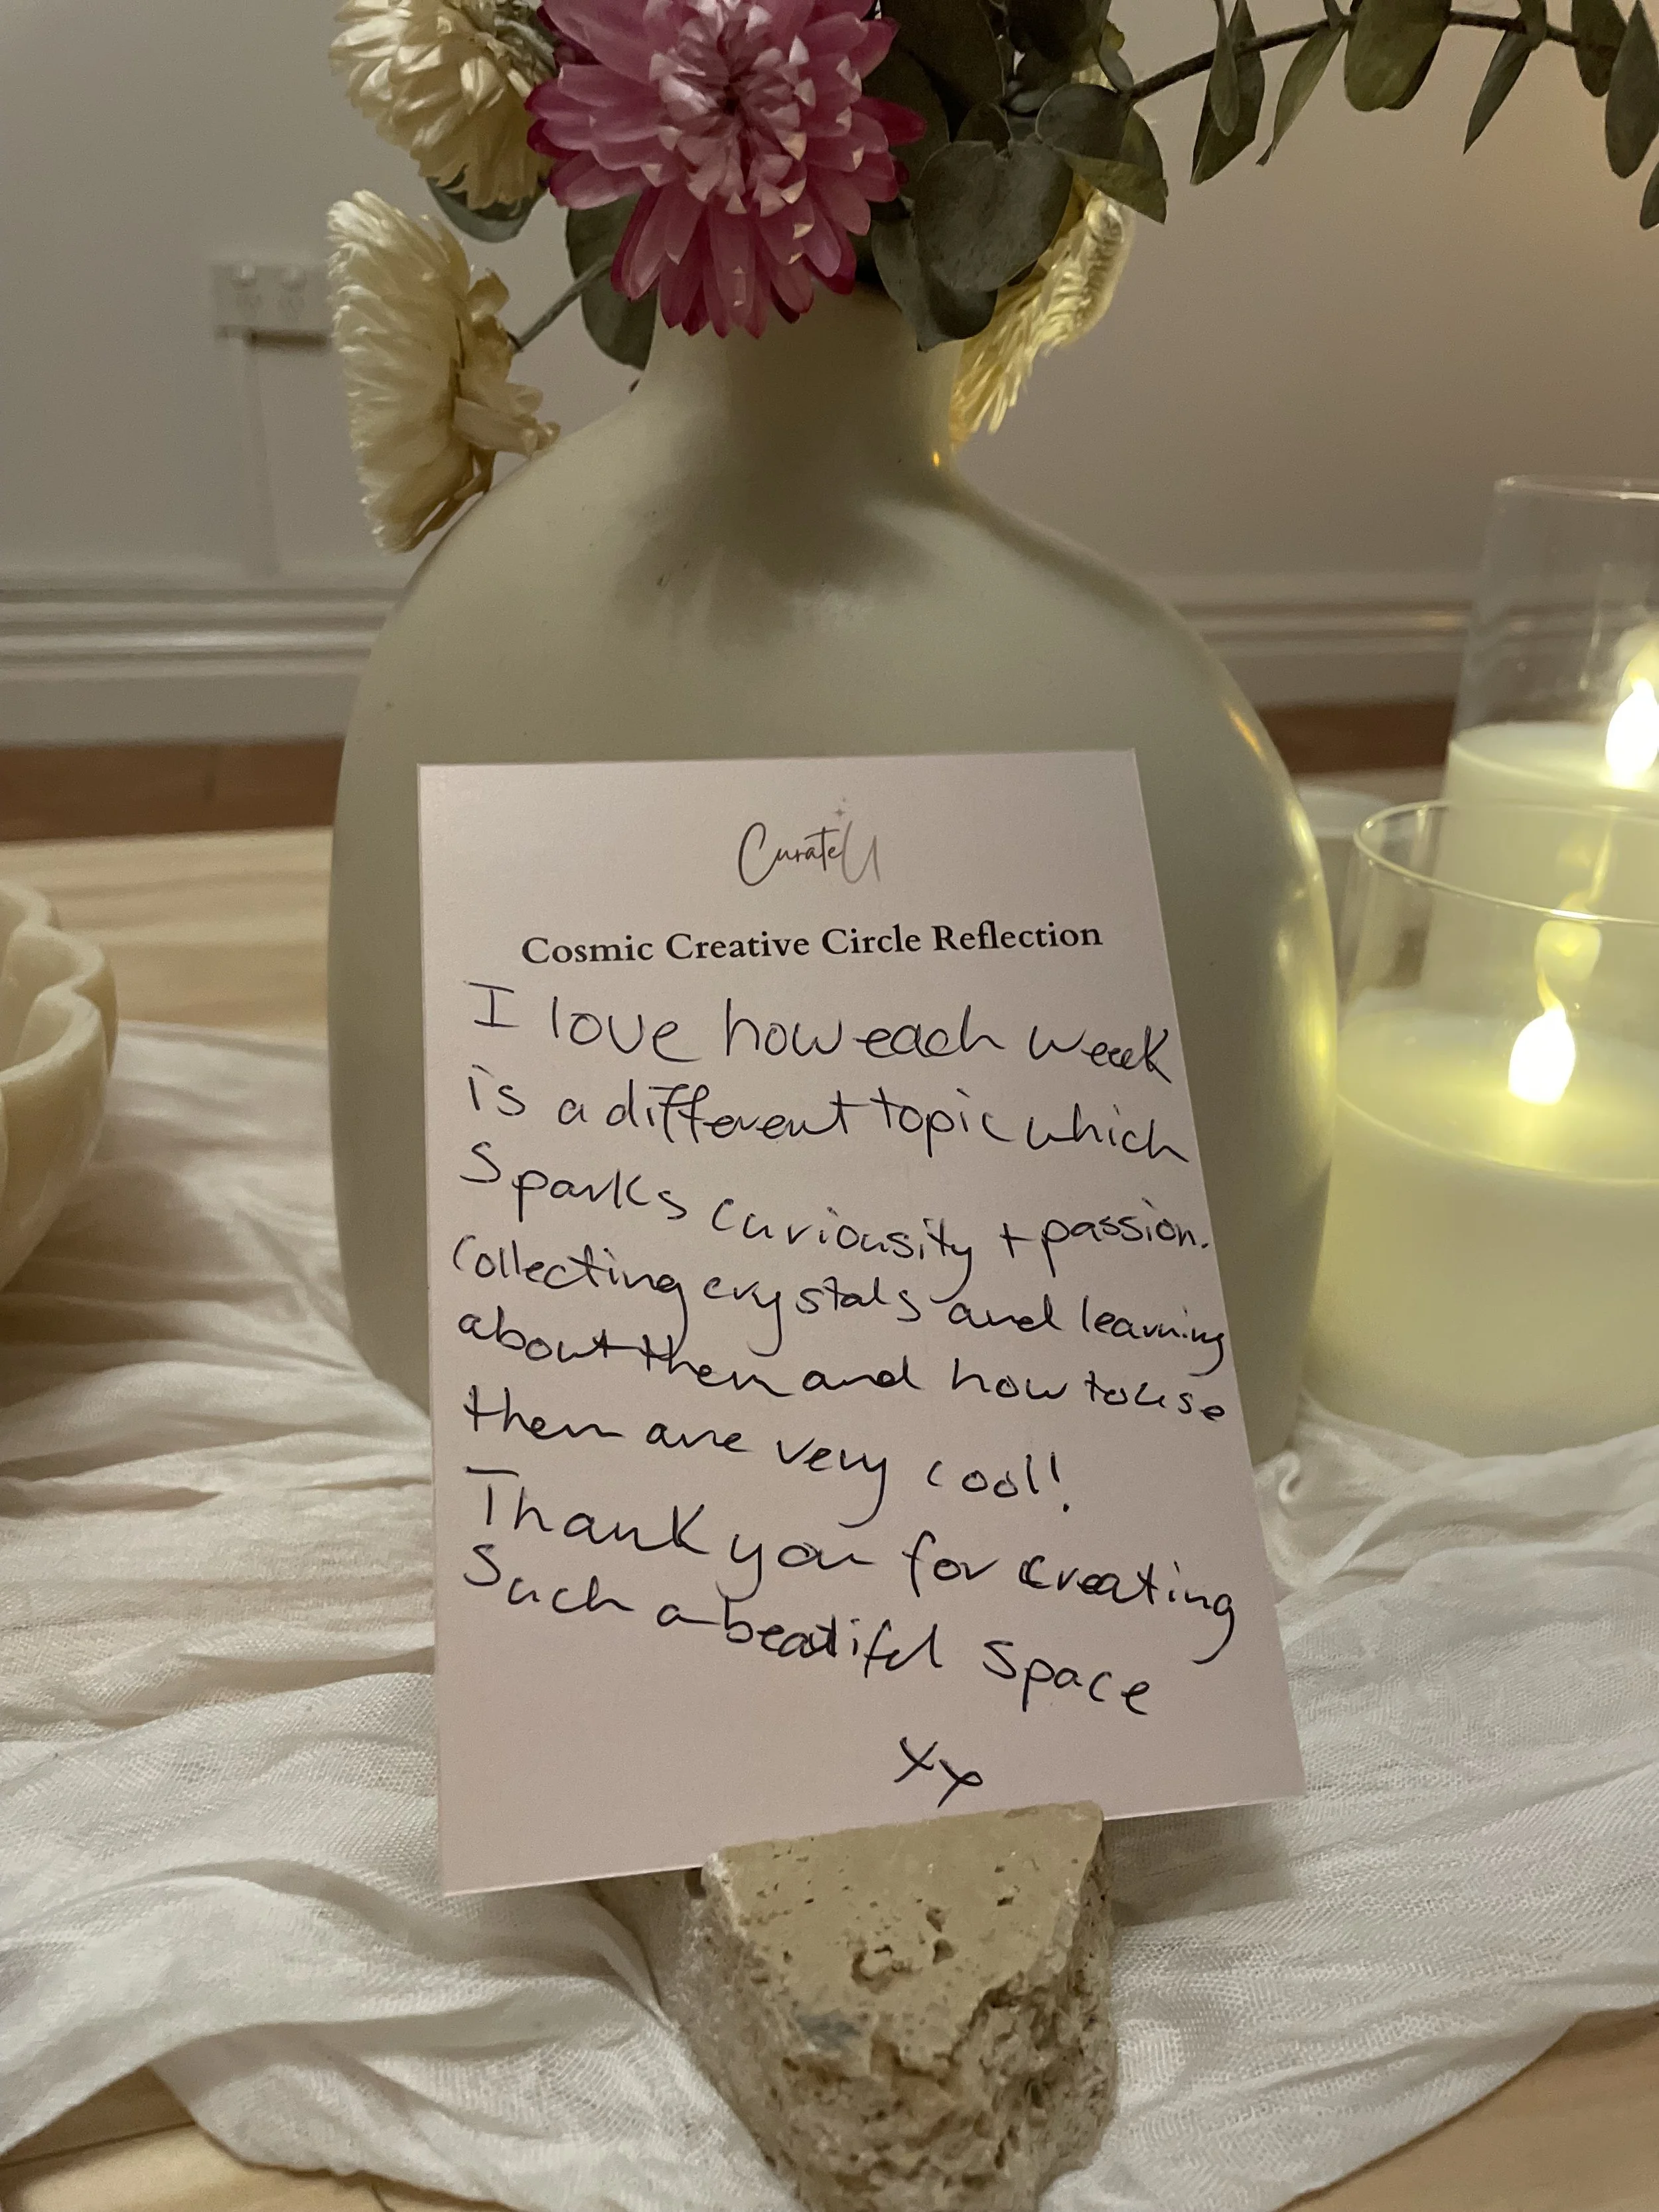 CurateU
Cosmic Creative Circle Reflection
I love how each week
is a different topic which
sparks curiousity + passion.
Collecting crystals and learning
about them and how to use
them are very cool!
Thank you for creating
such a beatiful space
xx